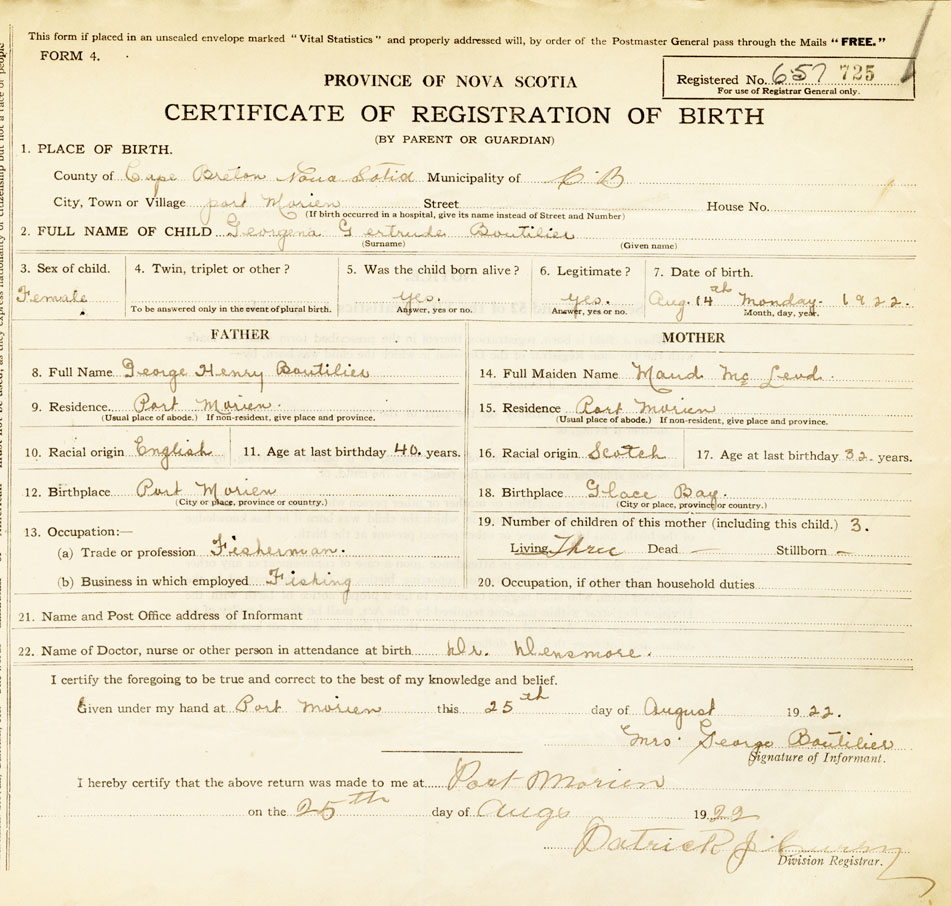 This form if placed in an unsealed envelope marked "Vital Statistics" and properly addressed will, by order of the Postmaster General pass through the Mails "FREE."
FORM 4.
Registered No. 657 725
For use of Registrar General only.
PROVINCE OF NOVA SCOTIA
CERTIFICATE OF REGISTRATION OF BIRTH
(BY PARENT OR GUARDIAN)
1. PLACE OF BIRTH.
County of Cape Breton Nova Sotia Municipality of C B
City, Town or Village port Morien Street House No.
(If birth occurred in a hospital, give its name instead of Street and Number)
2. FULL NAME OF CHILD Georgena Gertrude Boutilier
(Surname) (Given name)
3. Sex of child. 4. Twin, triplet or other? 5. Was the child born alive? 6. Legitimate? 7. Date of birth.
Female yes. yes. Aug. 14th Monday. 1922.
To be answered only in the event of plural birth. Answer, yes or no. Answer, yes or no. Month, day, year.
FATHER MOTHER
8. Full Name George Henry Boutilier 14. Full Maiden Name Maud Mc Leod.
9. Residence. Port Morien. 15. Residence Port Morien
(Usual place of abode.) If non-resident, give place and province. (Usual place of abode.) If non-resident, give place and province.
10. Racial origin English 11. Age at last birthday 40. years. 16. Racial origin Scotch 17. Age at last birthday 32. years.
12. Birthplace Port Morien 18. Birthplace Glace Bay.
(City or place, province or country.) (City or place, province or country.)
13. Occupation:— 19. Number of children of this mother (including this child.) 3.
(a) Trade or profession Fisherman. Living Three Dead — Stillborn —
(b) Business in which employed Fishing 20. Occupation, if other than household duties
21. Name and Post Office address of Informant
22. Name of Doctor, nurse or other person in attendance at birth Dr. Densmore.
I certify the foregoing to be true and correct to the best of my knowledge and belief.
Given under my hand at Port Morien this 25th day of August 1922.
Mrs. George Boutilier
Signature of Informant.
I hereby certify that the above return was made to me at Port Morien
on the 25th day of Augs 1922
Patrick J.
Division Registrar.